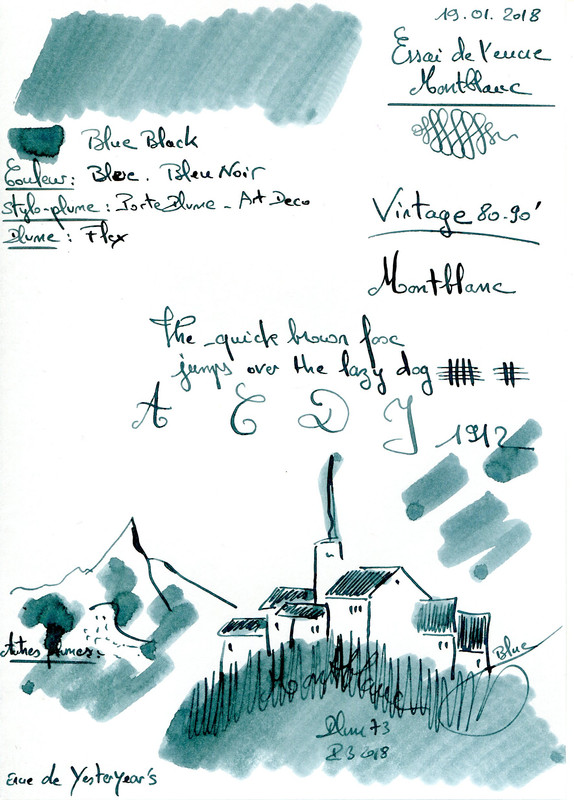 19.01.2018
Essai de l'encre
Montblanc
Blue Black
Couleur: Bloc. Bleu Noir
Stylo-plume: Porte Plume - Art Deco
Plume: Flex
Vintage 80-90'
Montblanc
The quick brown fox
jumps over the lazy dog
A E D J 1912
Autres
Blue
Montblanc
Plume 73
Encre de Yesteryear's